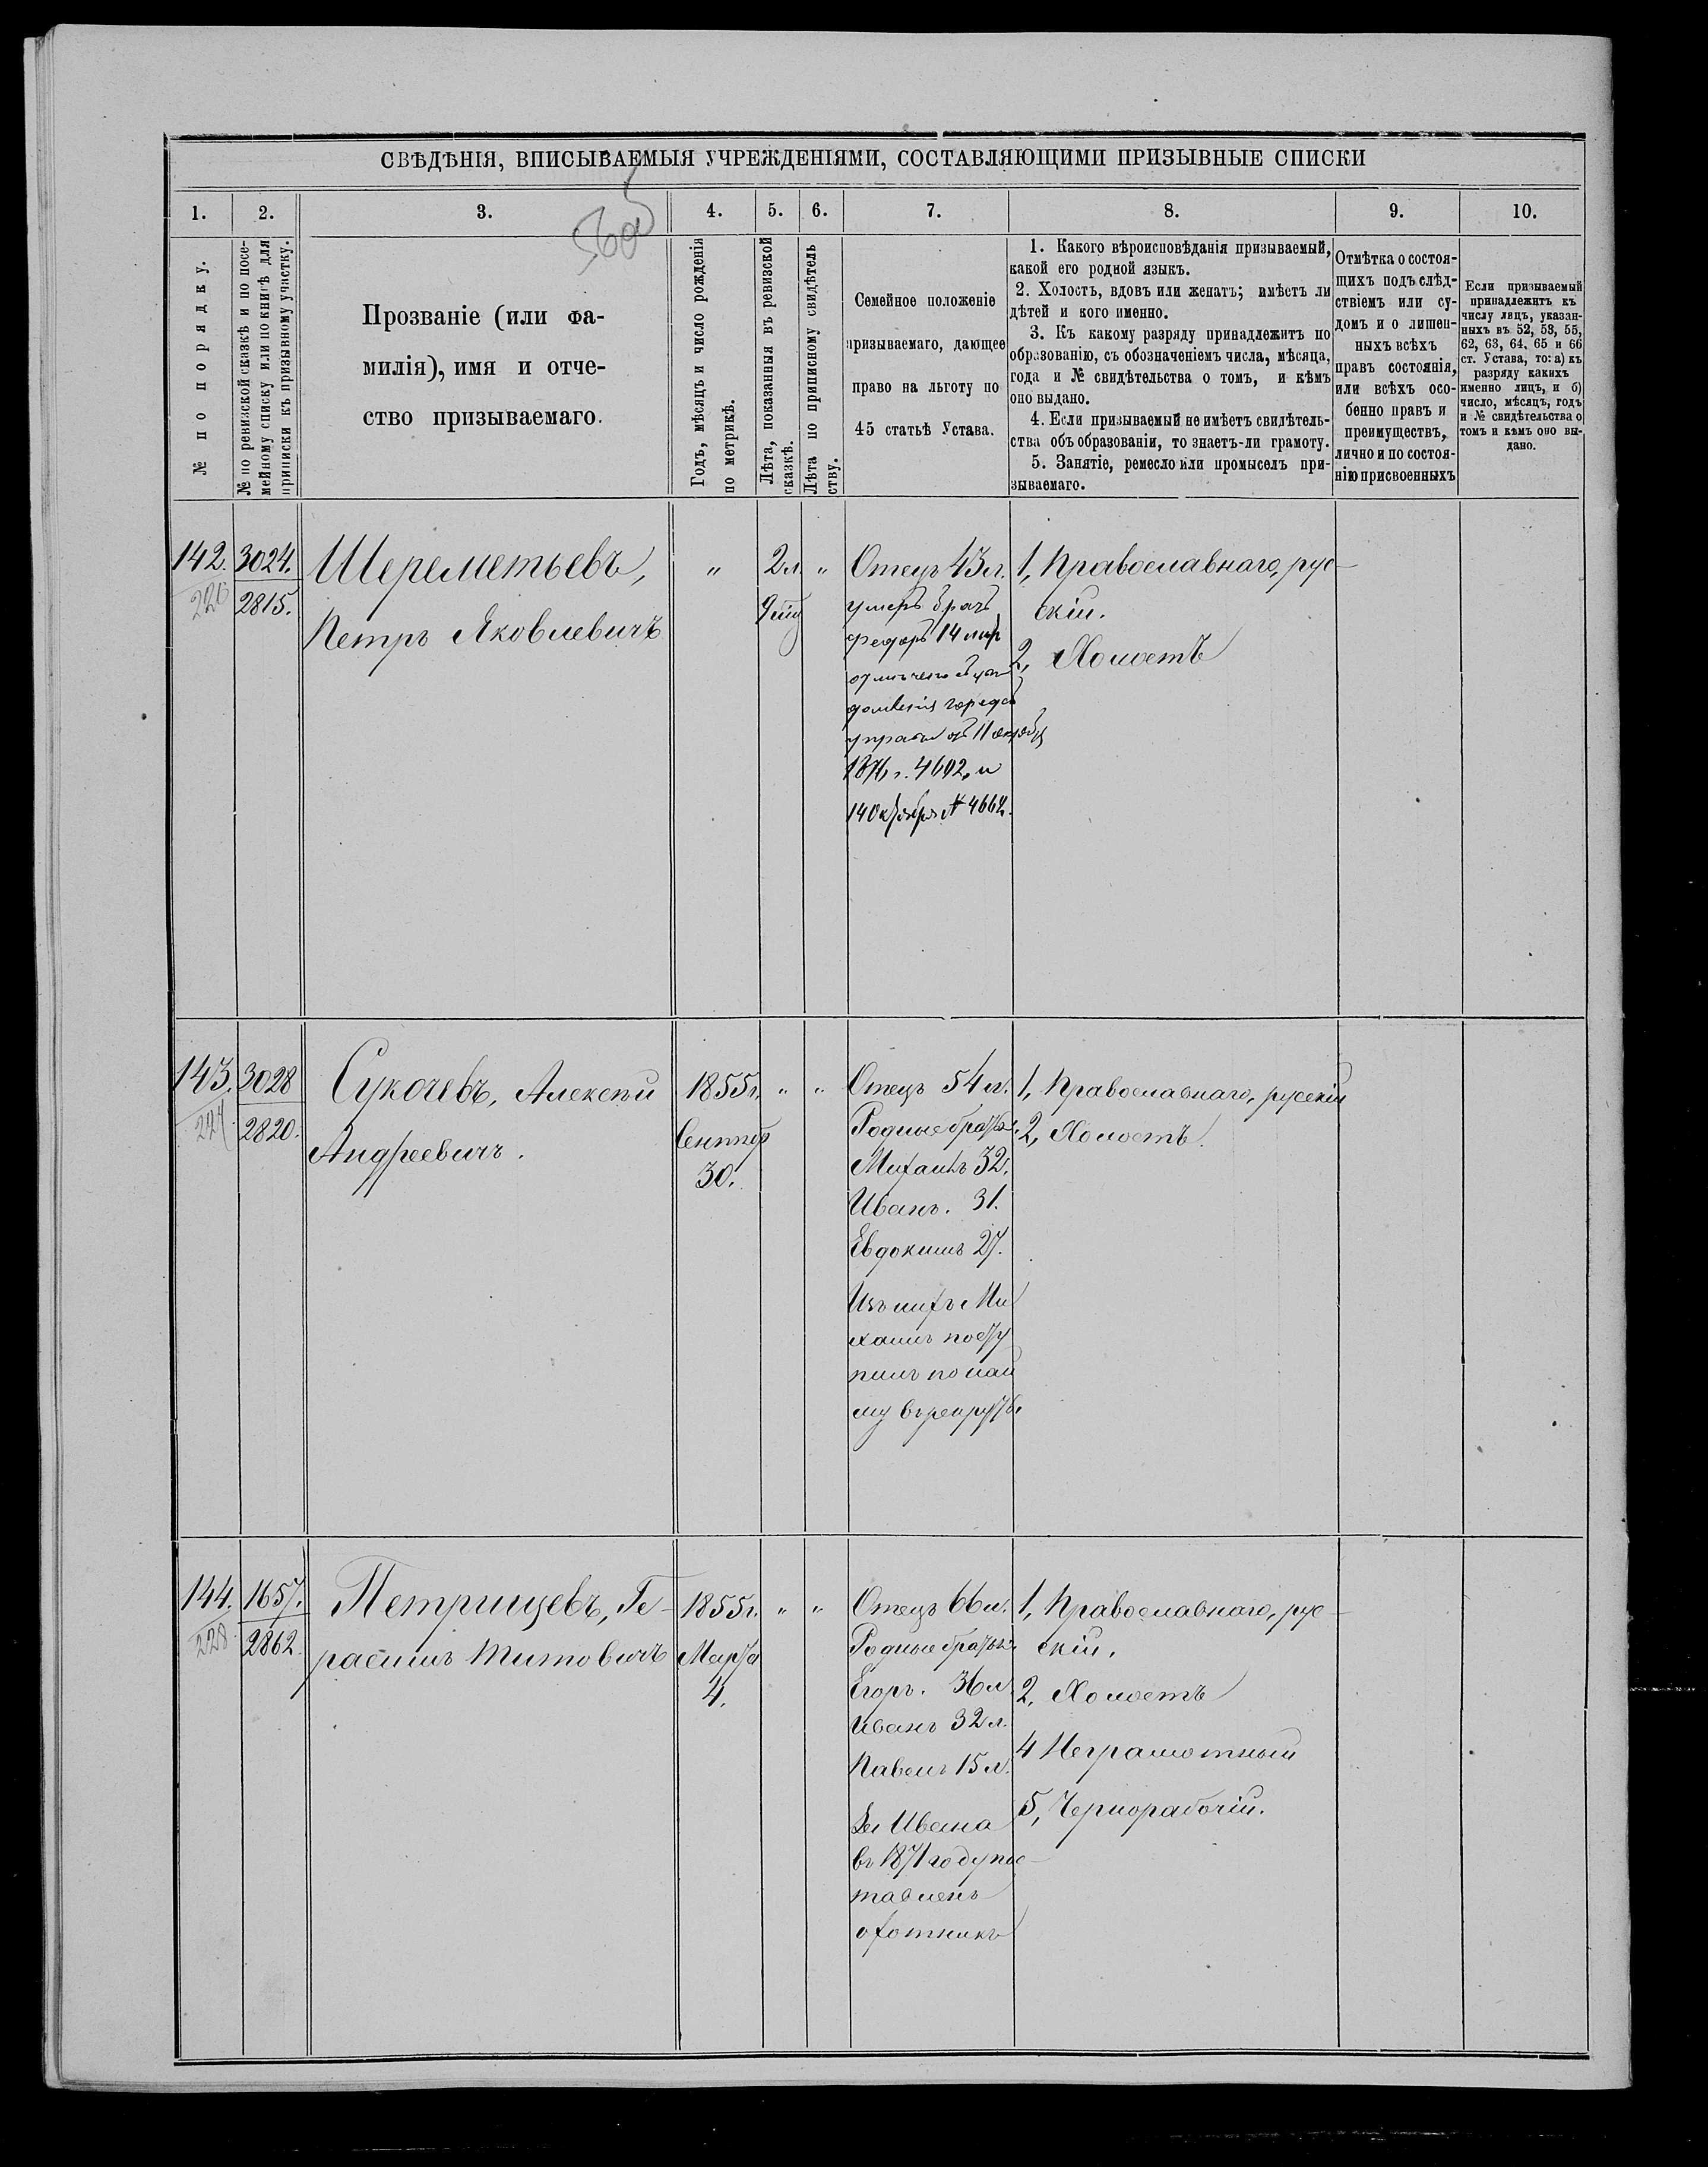 СВѢДѢНІЯ, ВПИСЫВАЕМЫЯ УЧРЕЖДЕНІЯМИ, СОСТАВЛЯЮЩИМИ ПРИЗЫВНЫЕ СПИСКИ
1. 2. 3. 4. 5. 6. 7. 8. 9. 10.
№ по порядку.
№ по ревизской сказкѣ и по посе-
мейному списку или по книгѣ для
приписки къ призывному участку.
Прозваніе (или фа-
милія), имя и отче-
ство призываемаго.
Годъ, мѣсяцъ и число рожденія
по метрикѣ.
Лѣта, показанныя въ ревизской
сказкѣ.
Лѣта по приписному свидѣтель
ству.
Семейное положеніе
призываемаго, дающее
право на льготу по
45 статьѣ Устава.
1. Какого вѣроисповѣданія призываемый,
какой его родной языкъ.
2. Холостъ, вдовъ или женатъ; имѣетъ ли
дѣтей и кого именно.
3. Къ какому разряду принадлежитъ по
образованію, съ обозначеніемъ числа, мѣсяца,
года и № свидѣтельства о томъ, и кѣмъ
оно выдано.
4. Если призываемый не имѣетъ свидѣтель-
ства объ образованіи, то знаетъ-ли грамоту.
5. Занятіе, ремесло или промыселъ при-
зываемаго.
Отмѣтка о состоя-
щихъ подъ слѣд-
ствіемъ или су-
домъ и о лишен-
ныхъ всѣхъ
правъ состоянія,
или всѣхъ осо-
бенно правъ и
преимуществъ,
лично и по состоя-
нію присвоенныхъ
Если призываемый
принадлежитъ къ
числу лицъ, указан-
ныхъ въ 52, 53, 55,
62, 63, 64, 65 и 66
ст. Устава, то: а) къ
разряду какихъ
именно лицъ, и б)
число, мѣсяцъ, годъ
и № свидѣтельства о
томъ и кѣмъ оно вы-
дано.
142.
226
3024.
2815.
Шереметьевъ,
Петръ Яковлевичъ
"
2 л.
"
Отецъ 43 л.
умеръ братъ
Федоръ 14 лѣтъ
11
4692 и
14 Октября № 4664.
1, Православнаго, рус-
скій.
2, Холостъ
143.
227.
3028
2820.
Сукочевъ, Алексѣй
Андреевичъ.
1855 г.
Сентябр
30.
"
"
Отецъ 54 л.
Родные братья:
Михаилъ 32.
Иванъ. 31.
Евдокимъ 27.
Изъ нихъ Ми
хаилъ посту
пилъ по най
му въ рекруты.
1, Православнаго, русскій
2, Холостъ.
144.
228.
1657.
2862.
Петрищевъ, Ге-
расимъ Титовичъ
1855 г.
Марта
4.
"
"
Отецъ 66 л.
Родные братья:
Егоръ. 36 л.
Иванъ 32 л.
Павелъ 15 л.
За Ивана
въ 1871 году пос-
тавленъ
охотникъ
1, Православнаго, рус-
скій.
2, Холостъ
4 Неграмотный
5, Чернорабочій.